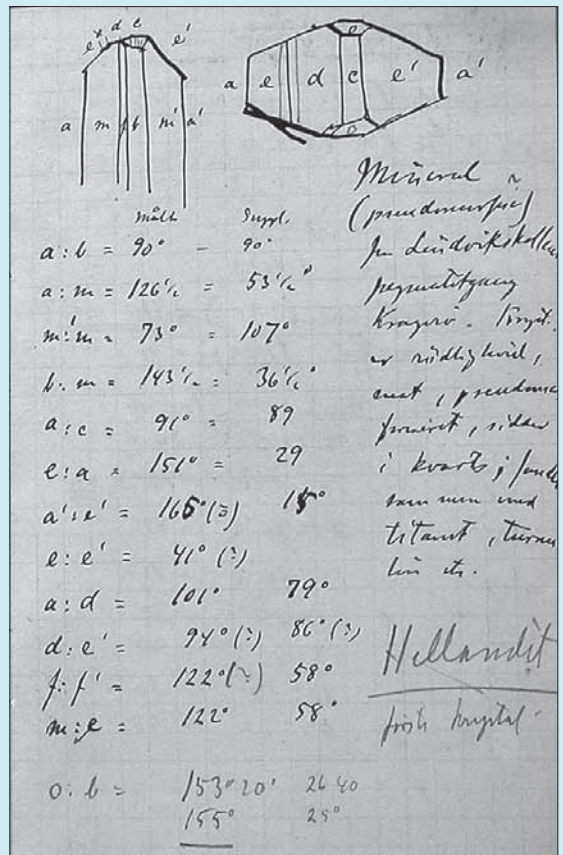 e x d c e'
a m f b m' a'
a e d c e' a'
o
o
Målt Suppl.
a : b = 90° – 90°
a : m = 126½ = 53½°
m' : m = 73° = 107°
b : m = 143½ = 36½°
a : c = 91° = 89
e : a = 151° = 29
a' : e' = 165° (?) 15°
e : e' = 41° (?)
a : d = 101° 79°
d : e' = 94° (?) 86° (?)
f : f' = 122° (?) 58°
m : e = 122° 58°
o : b = 153° 20' 26 40
155° 25°
Mineral
Lindvikskollen
pegmatitgang
Kragerø. Kryst.
er rödlighvid,
mat, pseudomor
foseret, sidder
i kvarts;
sammen med
titanit, turma
lin etc.
Hellandit